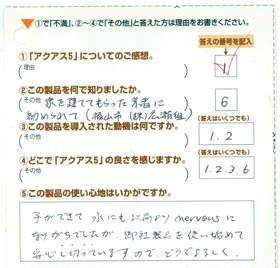 ①で「不満」、②~④で「その他」と答えた方は理由をお書きください。
答えの番号を記入
①「アクアス5」についてのご感想。
(理由
1
②この製品を何で知りましたか。
(その他 家を建てもらった業者に
勧められて (福山市 (株)広瀬組)
6
③この製品を導入された動機は何ですか。
(答えはいくつでも)
(その他
1.2
④どこで「アクアス5」の良さを感じますか。
(答えはいくつでも)
(その他
1.2.3.6
⑤この製品の使い心地はいかがですか。
子ができて 水にも以前より nervousに
なりがちでしたが、御社製品を使い始めて
安心し切っていますので、どうぞよろしく。